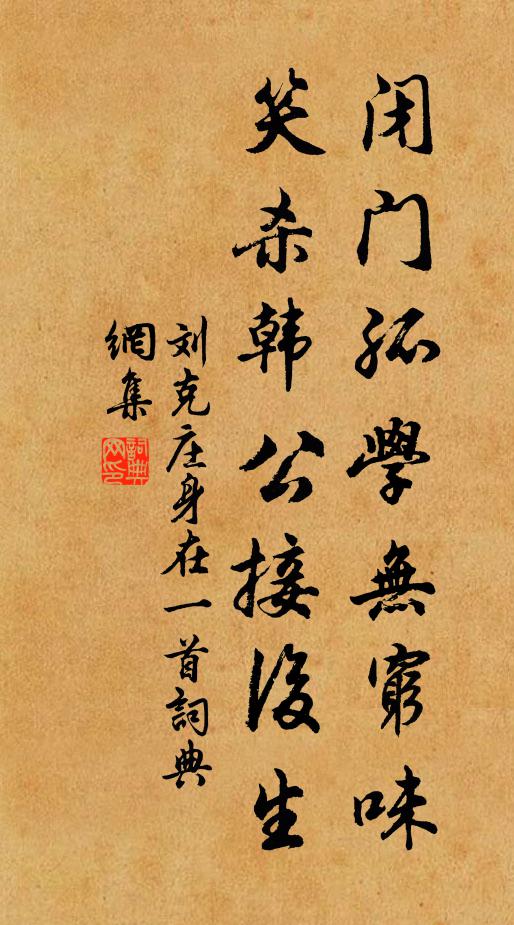 闭门孤學無窮味
笑杀韩公接後生
刘克庄身在一首詞典
網集
詞典網印